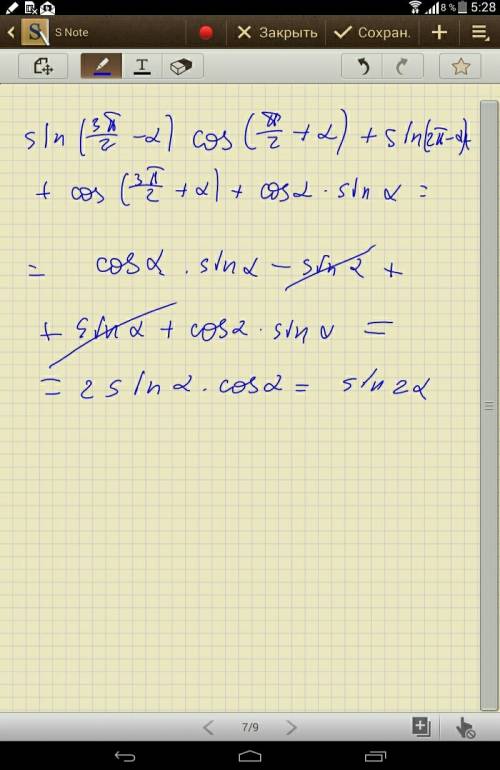 8 % 5:28
S Note
Закрыть
Сохран.
T
sin(3π/2 - α) cos(π/2 + α) + sin(2π-α)+
+ cos(3π/2 + α) + cosα · sin α =
= cosα · sinα - sin α +
+ sin α + cosα · sin α =
= 2 sin α · cosα = sin 2α
7/9